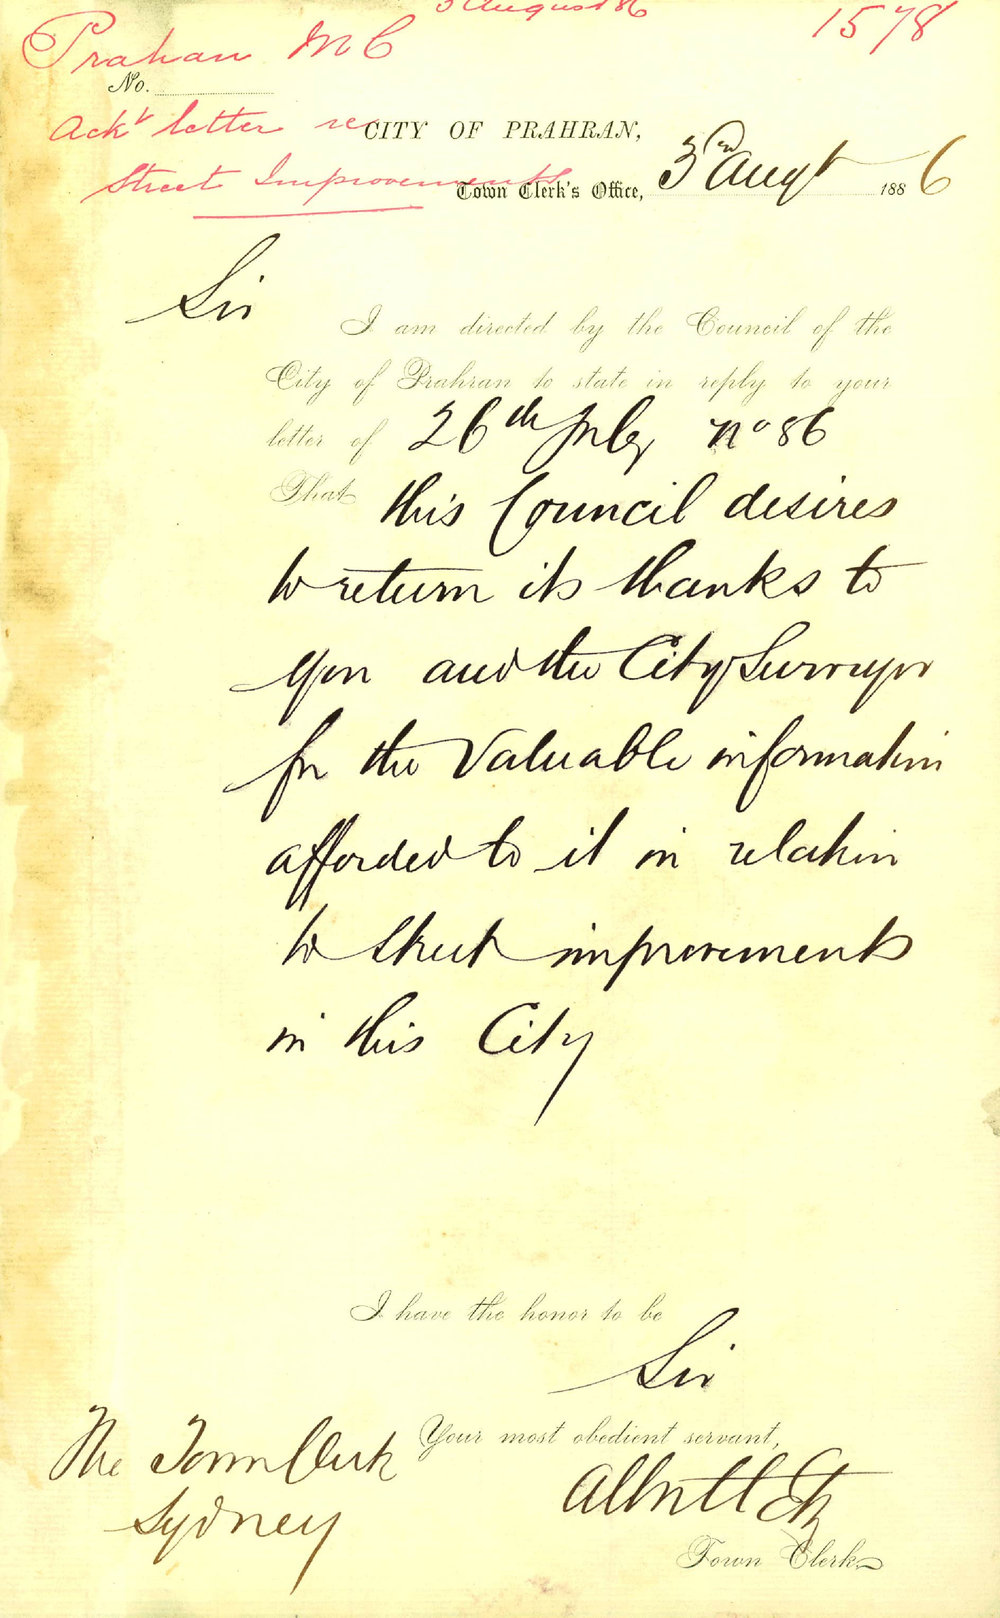 3 August 86
1578
Prahan M C
No.
Ackt letter re
CITY OF PRAHRAN,
Street Improvements
Town Clerk's Office, 3rd Augt 1886
Sir
I am directed by the Council of the
City of Prahran to state in reply to your
letter of 26th July no 86
That this Council desires
to return its thanks to
you and the City Surveyor
for the valuable information
afforded to it in relation
to Street improvements
in this City
I have the honor to be
Sir
Your most obedient servant,
The Town Clerk
Sydney
Town Clerk